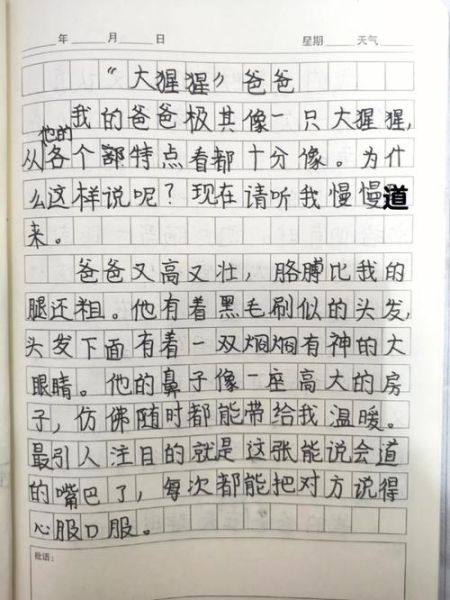 年 月 日 星期 天气
“大猩猩”爸爸
我的爸爸极其像一只大猩猩,
他的
从各个部特点看都十分像。为什
么这样说呢?现在请听我慢慢道
来。
爸爸又高又壮,胳膊比我的
腿还粗。他有着黑毛刷似的头发,
头发下面有着一双炯炯有神的大
眼睛。他的鼻子像一座高大的房
子,仿佛随时都能带给我温暖。
最引人注目的就是这张能说会道
的嘴巴了,每次都能把对方说得
心服口服。
批语: